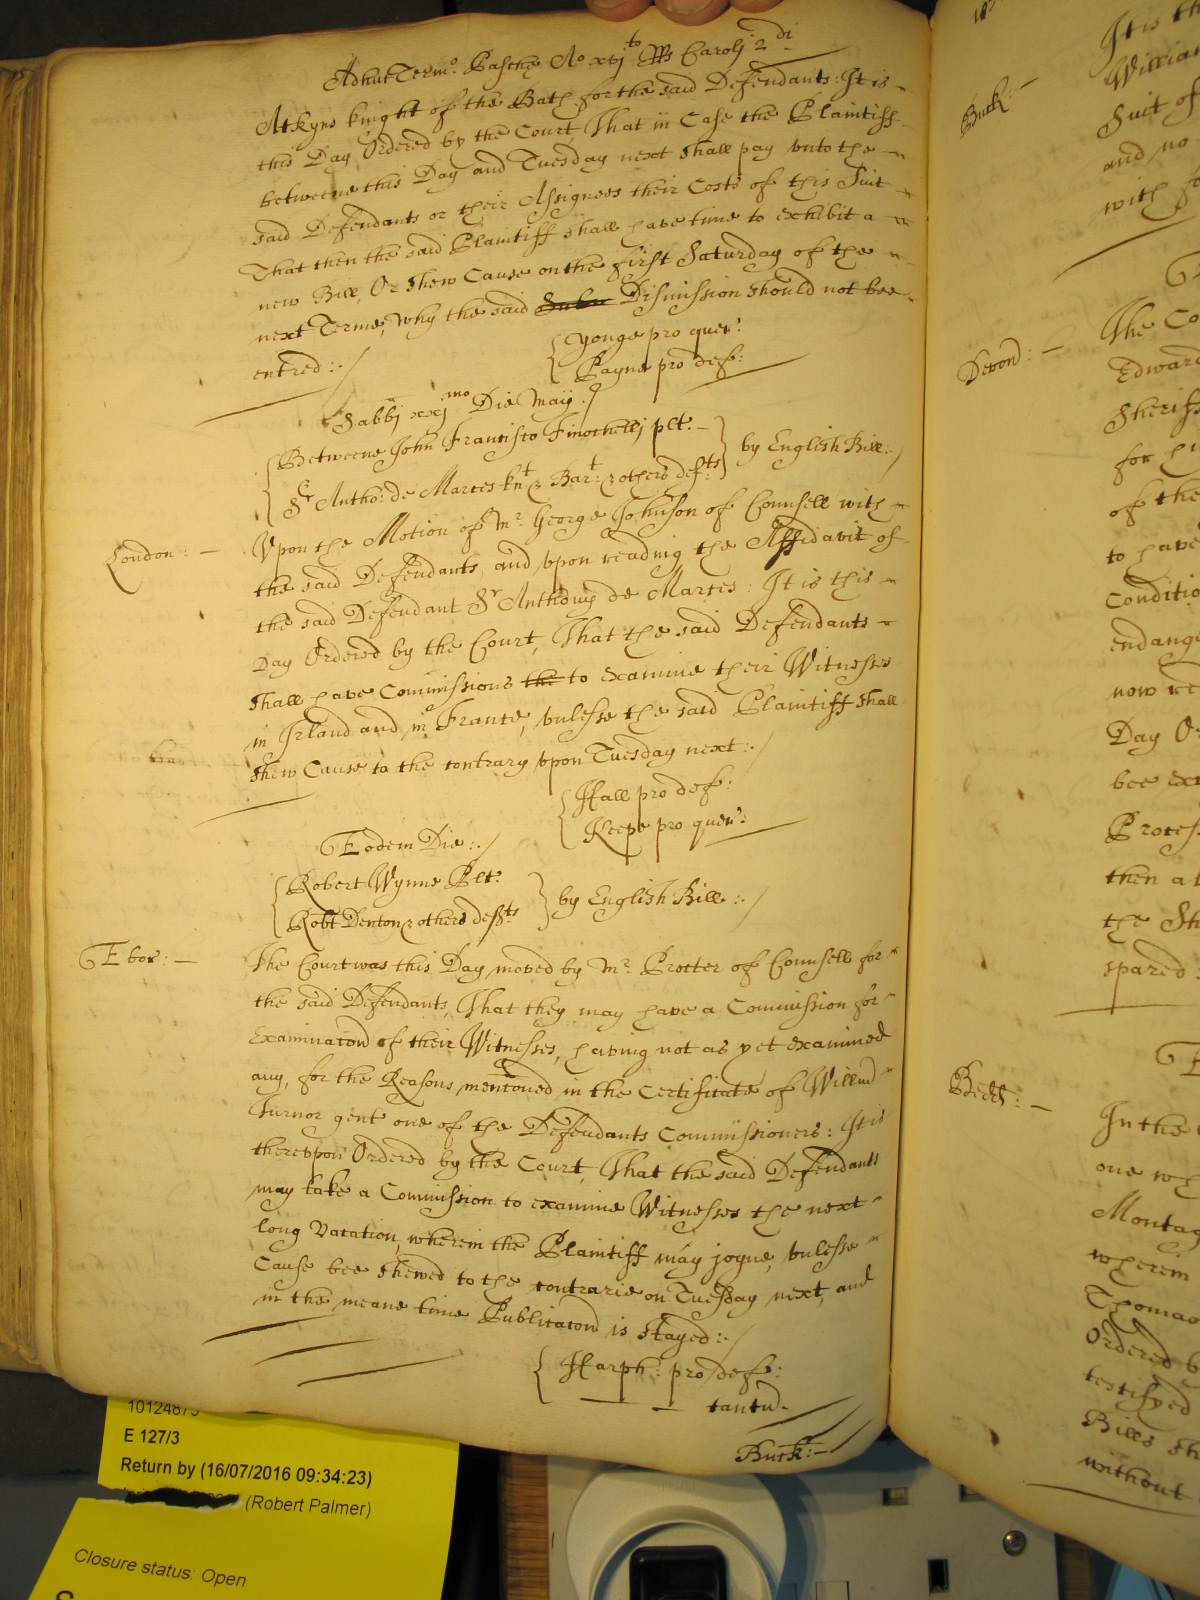 Adhuc Termo. Pasche Ao xvjto RRs Carolj 2di
Atkyns knight of the Bath for the said Defendants: It is
this Day Ordered by the Court That in Case the Plaintiff
betweene this Day and Tuesday next shall pay vnto the
said Defendants or their Assignees their Costs of this Suit
That then the said Plaintiff shall have time to exhibit a
new Bill, Or shew Cause on the first Saturday of the
next Terme, why the said Dismission should not bee
entred:.
Yonge pro quer:
Payne pro def:
Sabbj xxjmo Die May.
Betweene John Francisco Finochellj plt:
Sr Antho: de Marces knt & Bart: & others defts
by English Bill:
London:
Vpon the Motion of Mr. George Johnson of Counsell with
the said Defendants, and vpon reading the Affidavit of
the said Defendant Sr Anthony de Marces: It is this
Day Ordered by the Court, That the said Defendants
shall have Commissions the to examine their Witnesses
in Irland and in France, vnlesse the said Plaintiff shall
shew Cause to the contrary vpon Tuesday next:.
Hall pro def:
Keepe pro quer:
Eodem Die:.
Robert Wynne Plt:
Robt Denton & others defts
by English Bill:.
Ebor:
The Court was this Day moved by Mr. Procter of Counsell for
the said Defendants, That they may have a Commission for
Examinacon of their Witnesses, having not as yet examined
any, for the Reasons mentoned in the Certificate of Willm
Turnor gent one of the Defendants Commissioners: It is
therevpon Ordered by the Court, That the said Defendants
may take a Commission to examine Witnesses the next
long Vacation, wherein the Plaintiff may joyne, vnlesse
Cause bee shewed to the contrarie on Tuesday next, and
in the meane time Publicacon is stayed:.
Harph: pro def:
tantu.
Buck:
Buck:
It is th
William
Suit of
and no
with
Devon:
The Co
Edward
Sheriff
for hi
of the
to have
Conditio
endange
now re
Day Or
bee exa
Process
then at
the Sh
spared:
Bedd:
In the
one wh
Montag
wherein
Thomas
Ordered b
testifyed
Bills sh
without
10124875
E 127/3
Return by (16/07/2016 09:34:23)
(Robert Palmer)
Closure status: Open